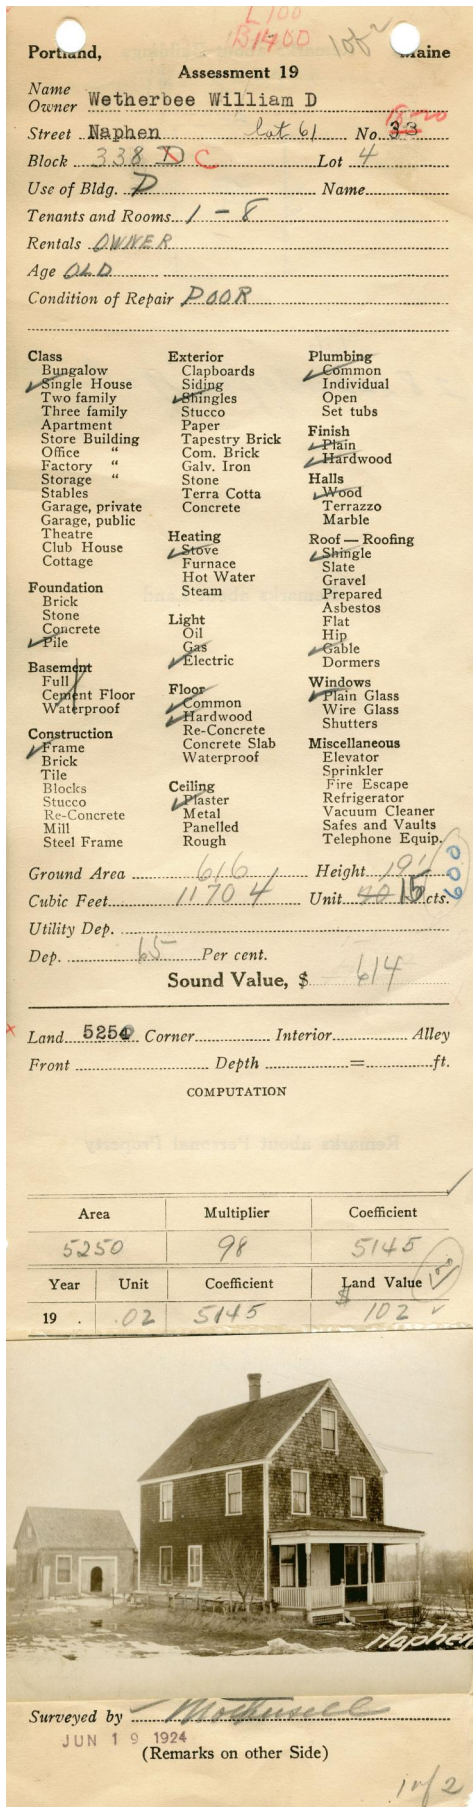 L 100
B 1400 1 of 2
Portland, Maine
Assessment 19
Name
Owner Wetherbee William D
Street Naphen lot 61 No. 33 18-20
Block 338 D C Lot 4
Use of Bldg. D Name
Tenants and Rooms 1 - 8
Rentals OWNER
Age OLD
Condition of Repair POOR
Class
Bungalow
Single House
Two family
Three family
Apartment
Store Building
Office "
Factory "
Storage "
Stables
Garage, private
Garage, public
Theatre
Club House
Cottage
Foundation
Brick
Stone
Concrete
Pile
Basement
Full
Cement Floor
Waterproof
Construction
Frame
Brick
Tile
Blocks
Stucco
Re-Concrete
Mill
Steel Frame
Exterior
Clapboards
Siding
Shingles
Stucco
Paper
Tapestry Brick
Com. Brick
Galv. Iron
Stone
Terra Cotta
Concrete
Heating
Stove
Furnace
Hot Water
Steam
Light
Oil
Gas
Electric
Floor
Common
Hardwood
Re-Concrete
Concrete Slab
Waterproof
Ceiling
Plaster
Metal
Panelled
Rough
Plumbing
Common
Individual
Open
Set tubs
Finish
Plain
Hardwood
Halls
Wood
Terrazzo
Marble
Roof — Roofing
Shingle
Slate
Gravel
Prepared
Asbestos
Flat
Hip
Gable
Dormers
Windows
Plain Glass
Wire Glass
Shutters
Miscellaneous
Elevator
Sprinkler
Fire Escape
Refrigerator
Vacuum Cleaner
Safes and Vaults
Telephone Equip.
Ground Area 616 Height 19'
Cubic Feet 11704 Unit 15 cts. 600
Utility Dep.
Dep. 65 Per cent.
Sound Value, $ 614
Land 5250 Corner Interior Alley
Front Depth = ft.
COMPUTATION
Area Multiplier Coefficient
5250 98 5145
Year Unit Coefficient Land Value
19 . .02 5145 $ 102
Naphen
Surveyed by
JUN 19 1924
(Remarks on other Side)
1 of 2